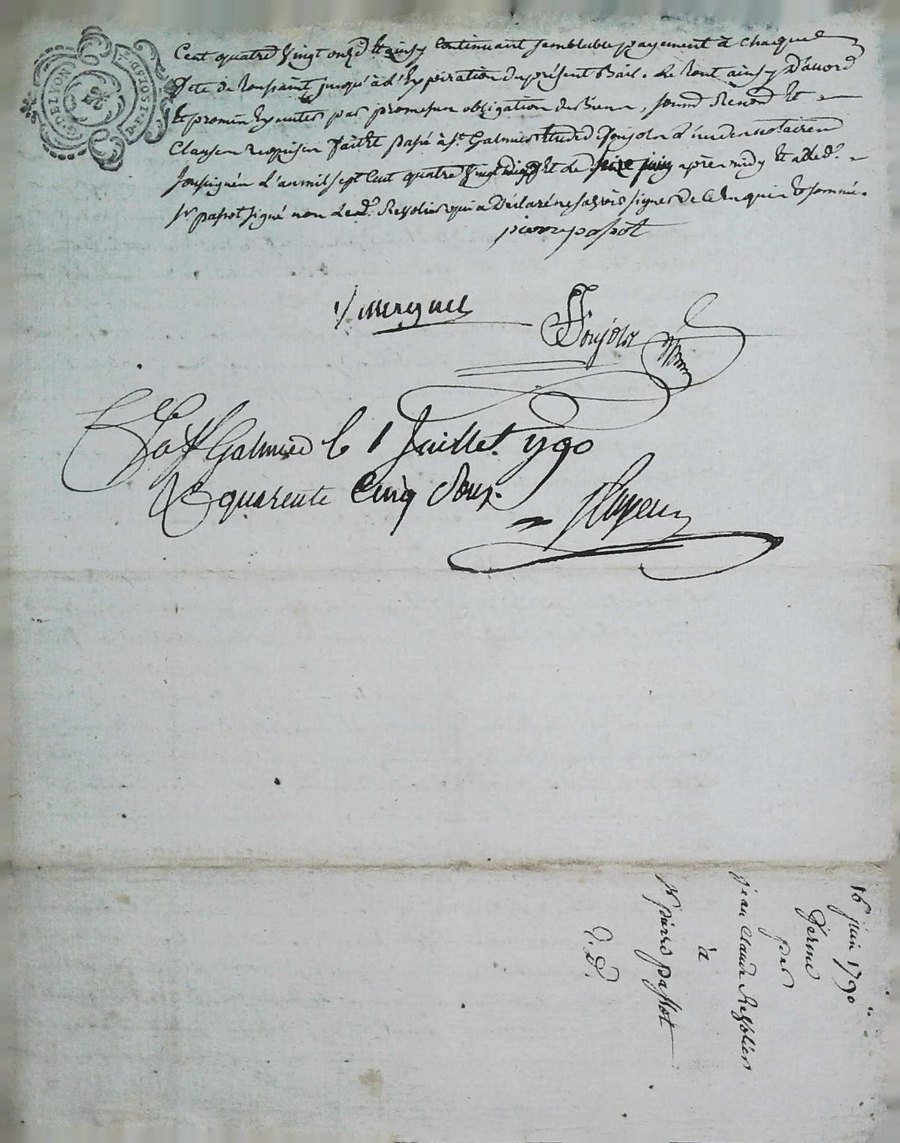 G. DE LYON
Cent quatre vingt onze et ainsy continuant semblable payement à chaque
fete de toussaint jusqu'à l'expiration du présent Bail. Le tout ainsy d'accord
et promis executer par promesse obligation de Biens, soumd Renond et
Clauses requises fait et passé à St. Galmier Etude de Jonjon l'un des notaires
soussignés l'an mil sept Cent quatre vingt dix et le seize juin après midy et a led.
Sr passot signé non led. Ressolier qui a Déclaré ne savoir signer de ce Enquis et sommé.
pierre passot
Jonjon
Co. à St Galmier le 1 Juillet 1790
R quarente Cinq sous.
16 juin 1790
ferme
par
jean Claude Ressolier
à
Sr pierre passot